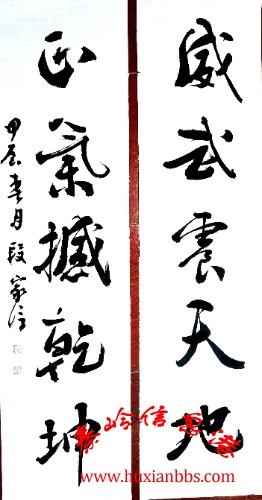 威武震天地
正氣撼乾坤
甲辰春月段家信
www.huxianbbs.com